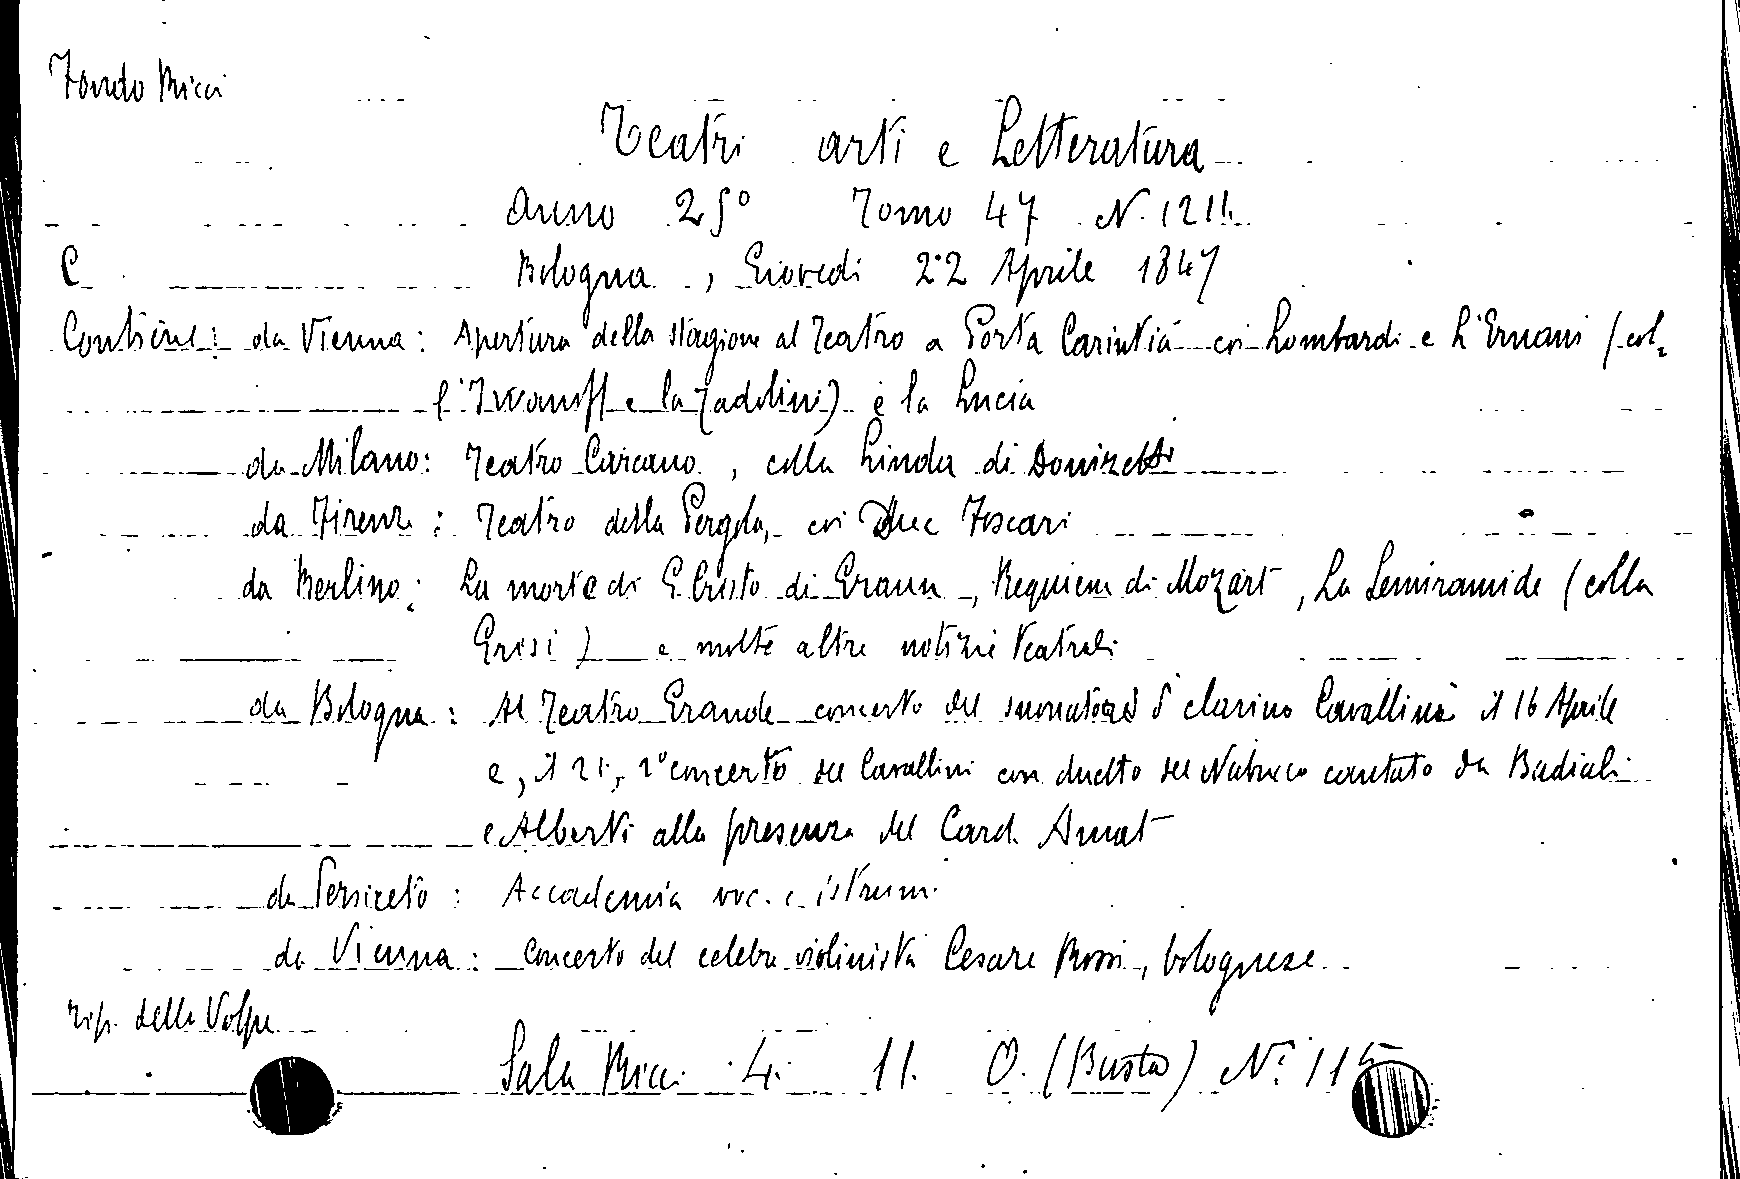 Fondo Ricci
Teatri arti e Letteratura
Anno 25° Tomo 47 N. 1214
C Bologna, Giovedi 22 Aprile 1847
Contiene: da Vienna: Apertura della stagione al Teatro a Porta Carintia coi Lombardi e L'Ernani (col-
l'Iwanoff e la Tadolini) e la Lucia
da Milano: Teatro Carcano, colla Linda di Donizetti
da Firenze: Teatro della Pergola, coi Due Foscari
da Berlino: La morte di G. Cristo di Graun, Requiem di Mozart, La Semiramide (colla
Grisi) e molte altre notizie teatrali
da Bologna: Al Teatro Grande concerto del suonatore di clarino Cavallini il 16 Aprile
e, il 21, 2° concerto del Cavallini con duetto del Nabucco cantato da Badiali
e Alberti alla presenza del Card. Amat
da Persiceto: Accademia voc. e istrum.
da Vienna: concerto del celebre violinista Cesare Rossi, bolognese
tip. della Volpe
Sala Ricci 4. 11. O. (Busta) N°